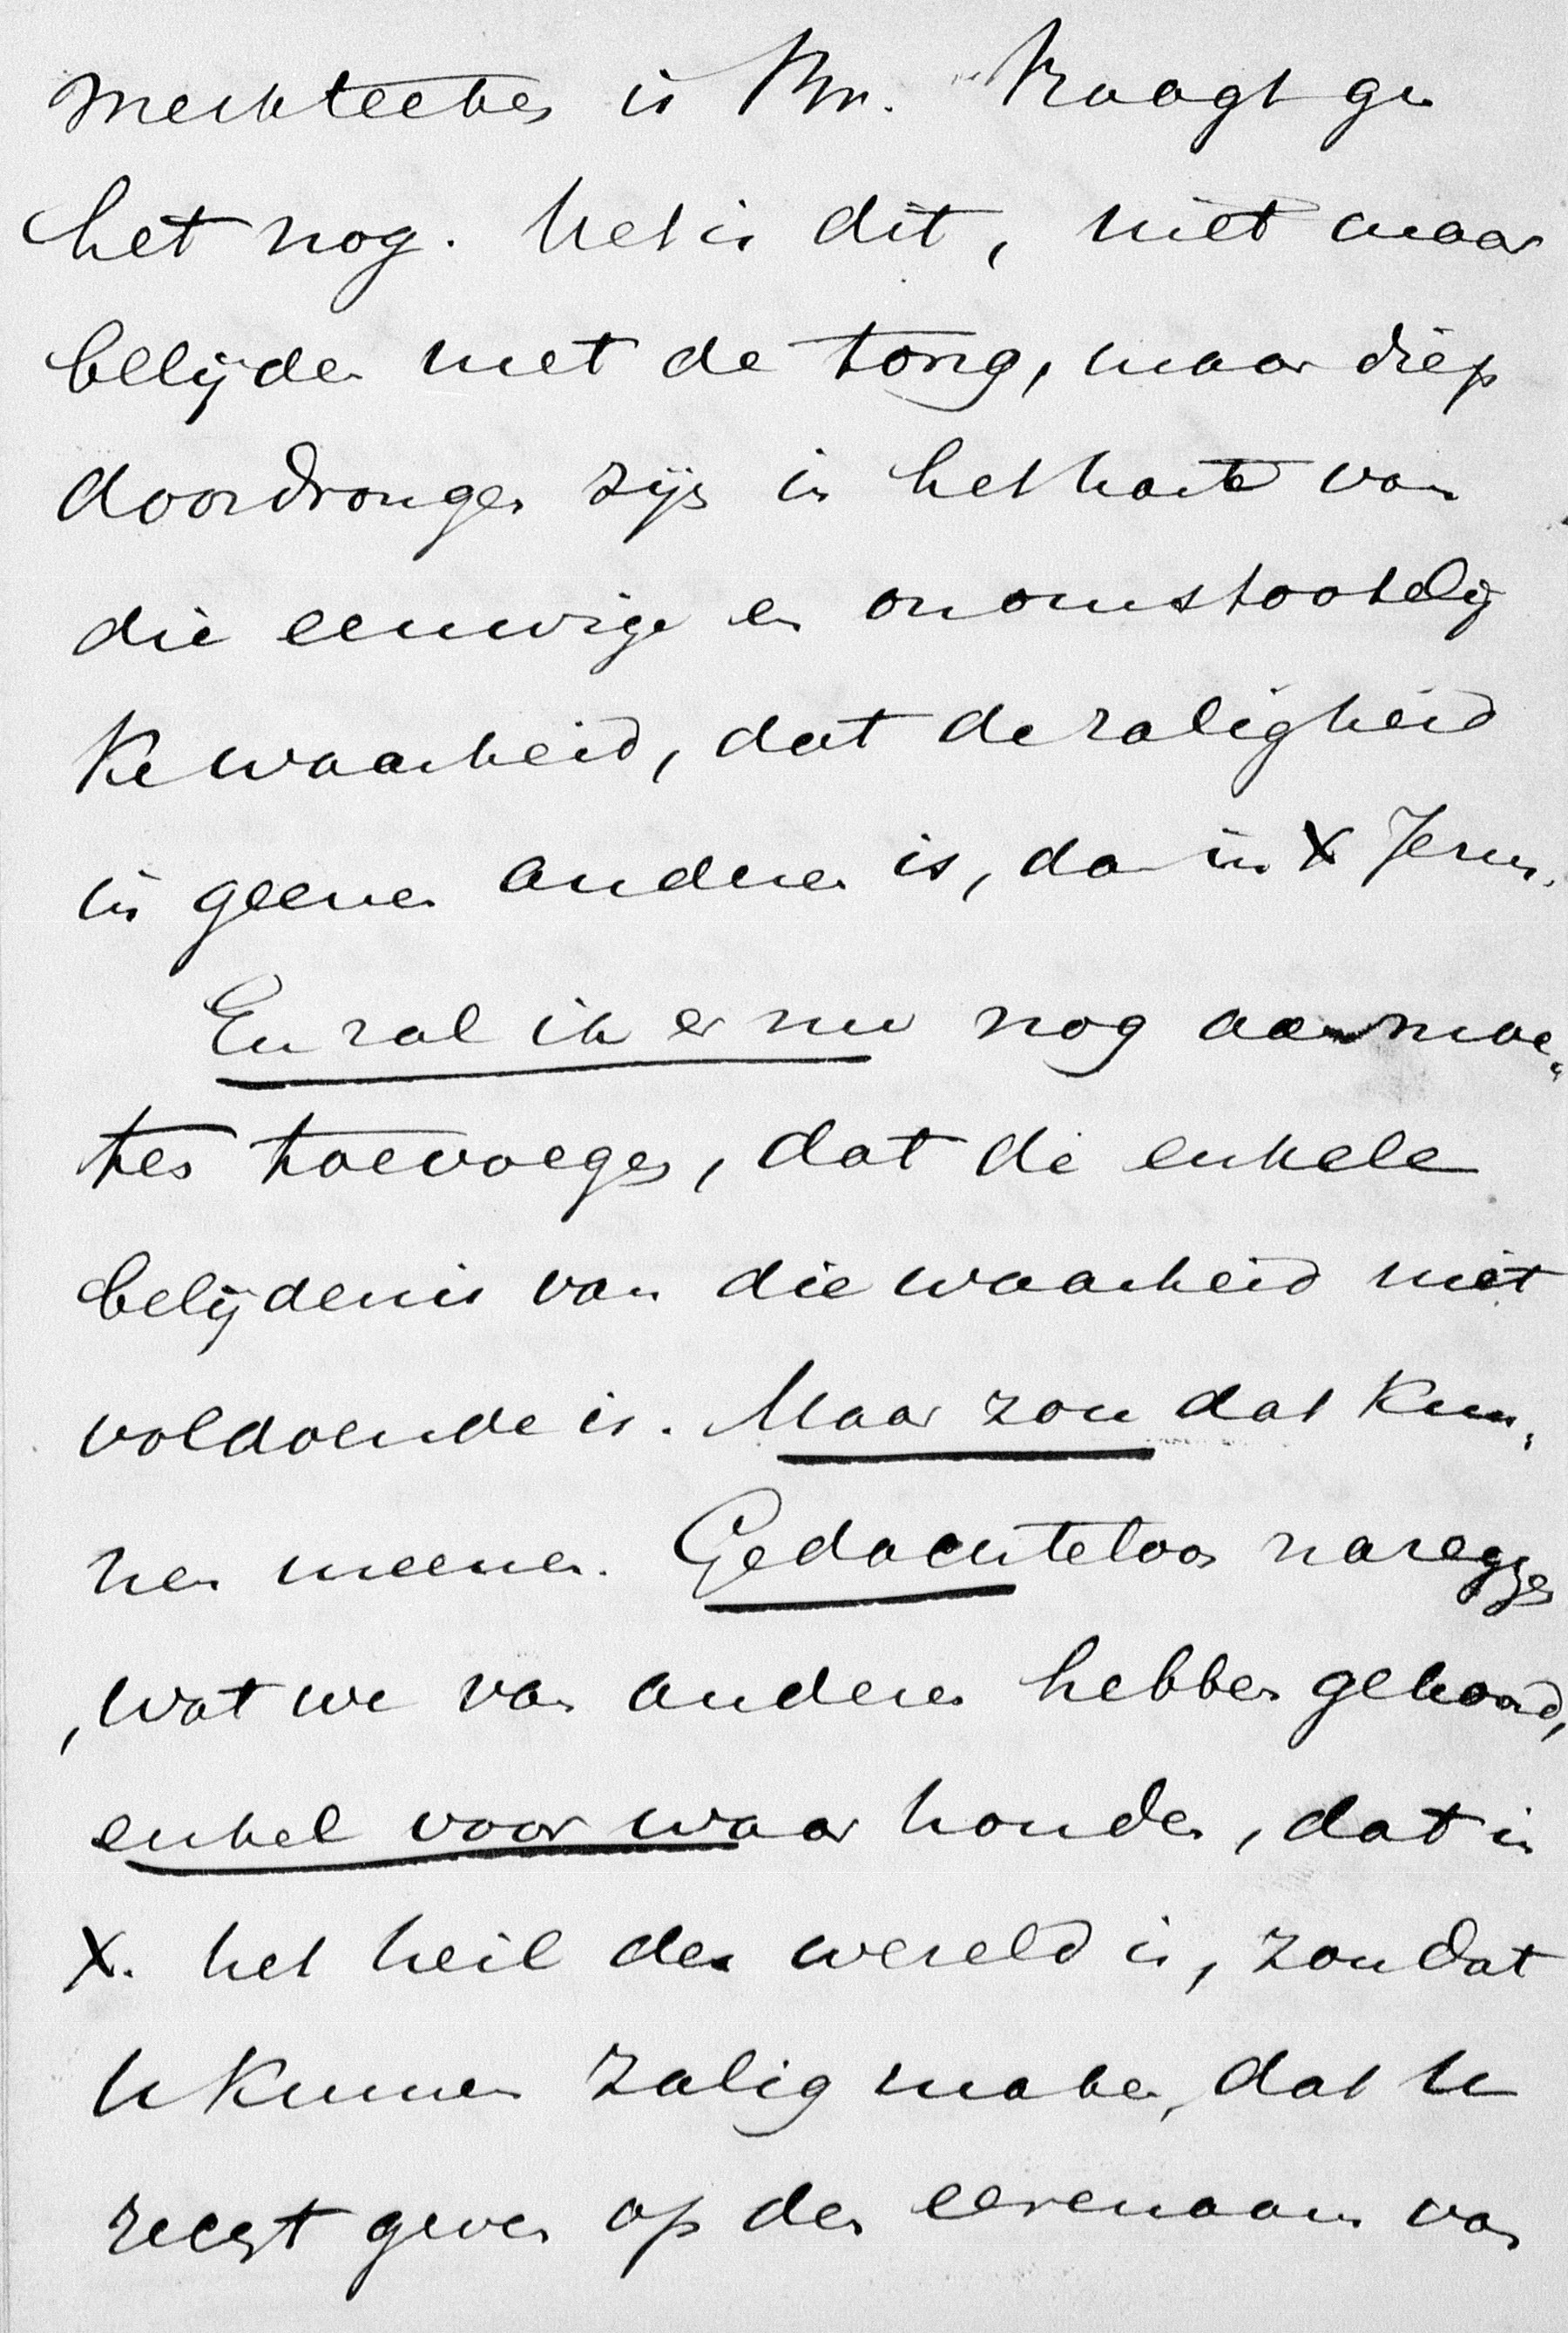 Merkteeken is Br. Vraagt ge
het nog. Het is dit, niet maar
belijden met de tong, maar diep
doordrongen zijn in het harte van
die eeuwige en onomstootelij
ke waarheid, dat de zaligheid
in geenen anderen is, dan in X Jezus.
En zal ik er nu nog aan moe„
ten toevoegen, dat de enkele
belijdenis van die waarheid niet
voldoende is. Maar zou dat kun„
nen meenen. Gedachteloos nazeggen
, wat we van anderen hebben gehoord,
enkel voor waar houden, dat in
X. het heil der wereld is, zou dat
u kunnen zalig maken, dat u
recht geven op den eerenaam van